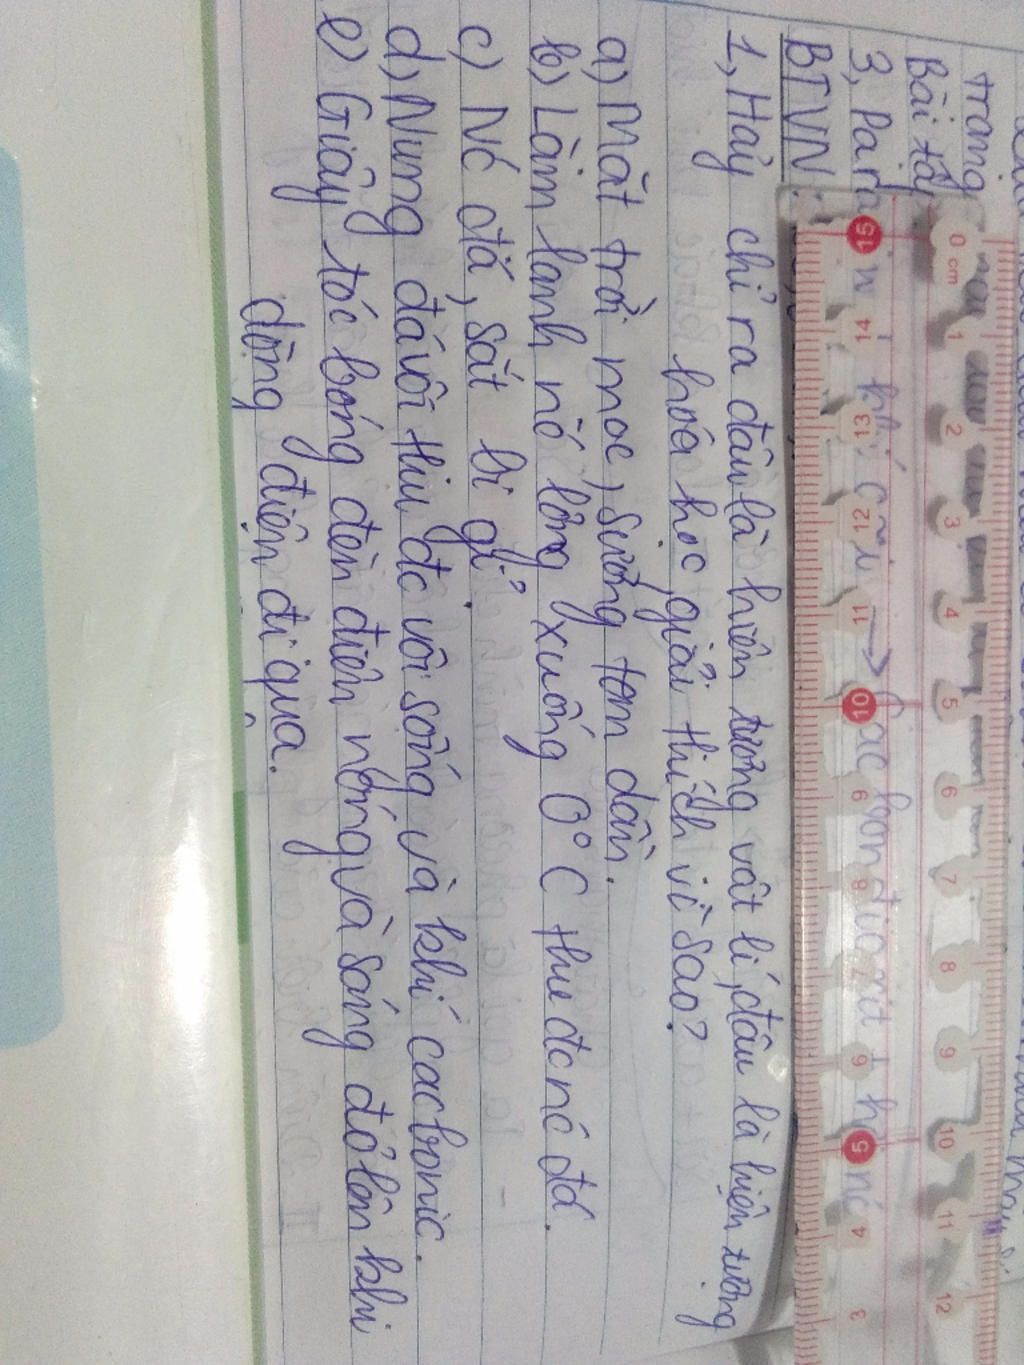 trang
Bài tập
3, Para
BTVN:
1, Hãy chỉ ra đâu là hiện tượng vật lí, đâu là hiện tượng
hoá học, giải thích vì sao?
a, Mặt trời mọc, sương tan dần.
b) Làm lạnh nc lỏng xuống 0°C thu đc nc đá.
c) Nc đá, sắt bị gỉ.
d, Nung đá vôi thu đc vôi sống và khí cacbonic.
e) Giây tóc bóng đèn điện nóng và sáng đỏ lên khi
dòng điện đi qua.
0 cm 1 2 3 4 5 6 7 8 9 10 11 12
15 14 13 12 11 10 9 8 7 6 5 4 3